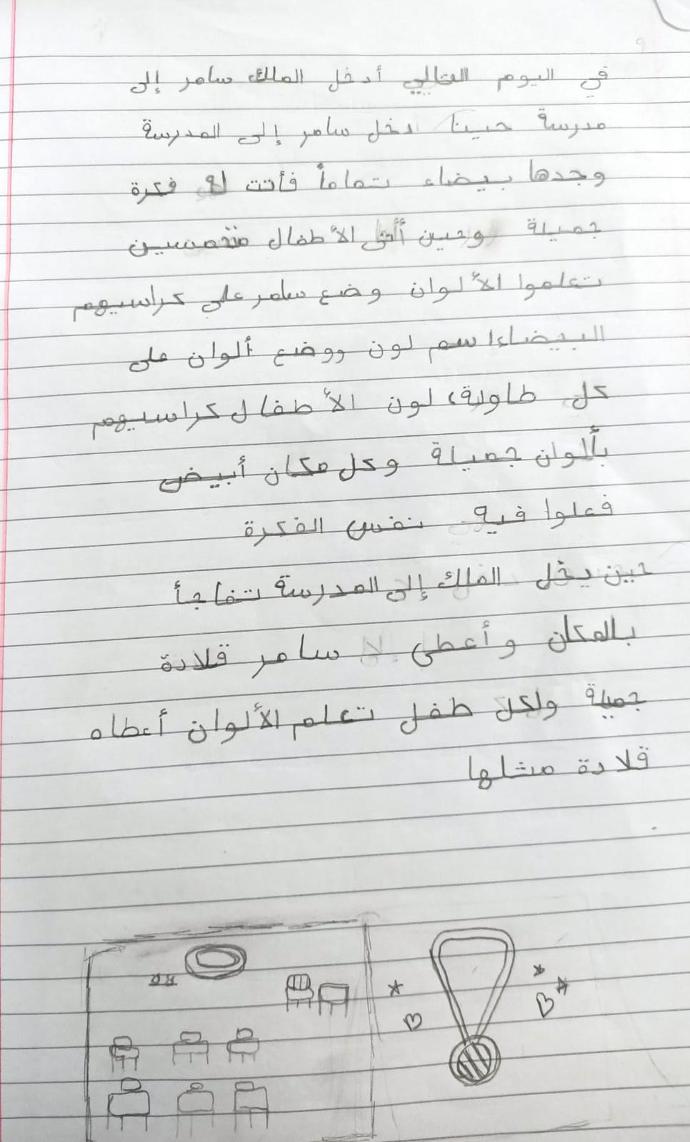 في اليوم التالي أدخل الملك سامر إلى
مدرسة حينا دخل سامر إلى المدرسة
وجدها بيضاء تماماً فأتت له فكرة
جميلة وحين أتى الأطفال متحمسين
تعلموا الألوان وضع سامر على كراسيهم
البيضاء اسم لون ووضع ألوان على
كل طاولة، لون الأطفال كراسيهم
بألوان جميلة وكل مكان أبيض
فعلوا فيه نفس الفكرة
حين دخل الملك إلى المدرسة تفاجأ
بالمكان وأعطى سامر قلادة
جميلة ولكل طفل تعلم الألوان أعطاه
قلادة مثلها